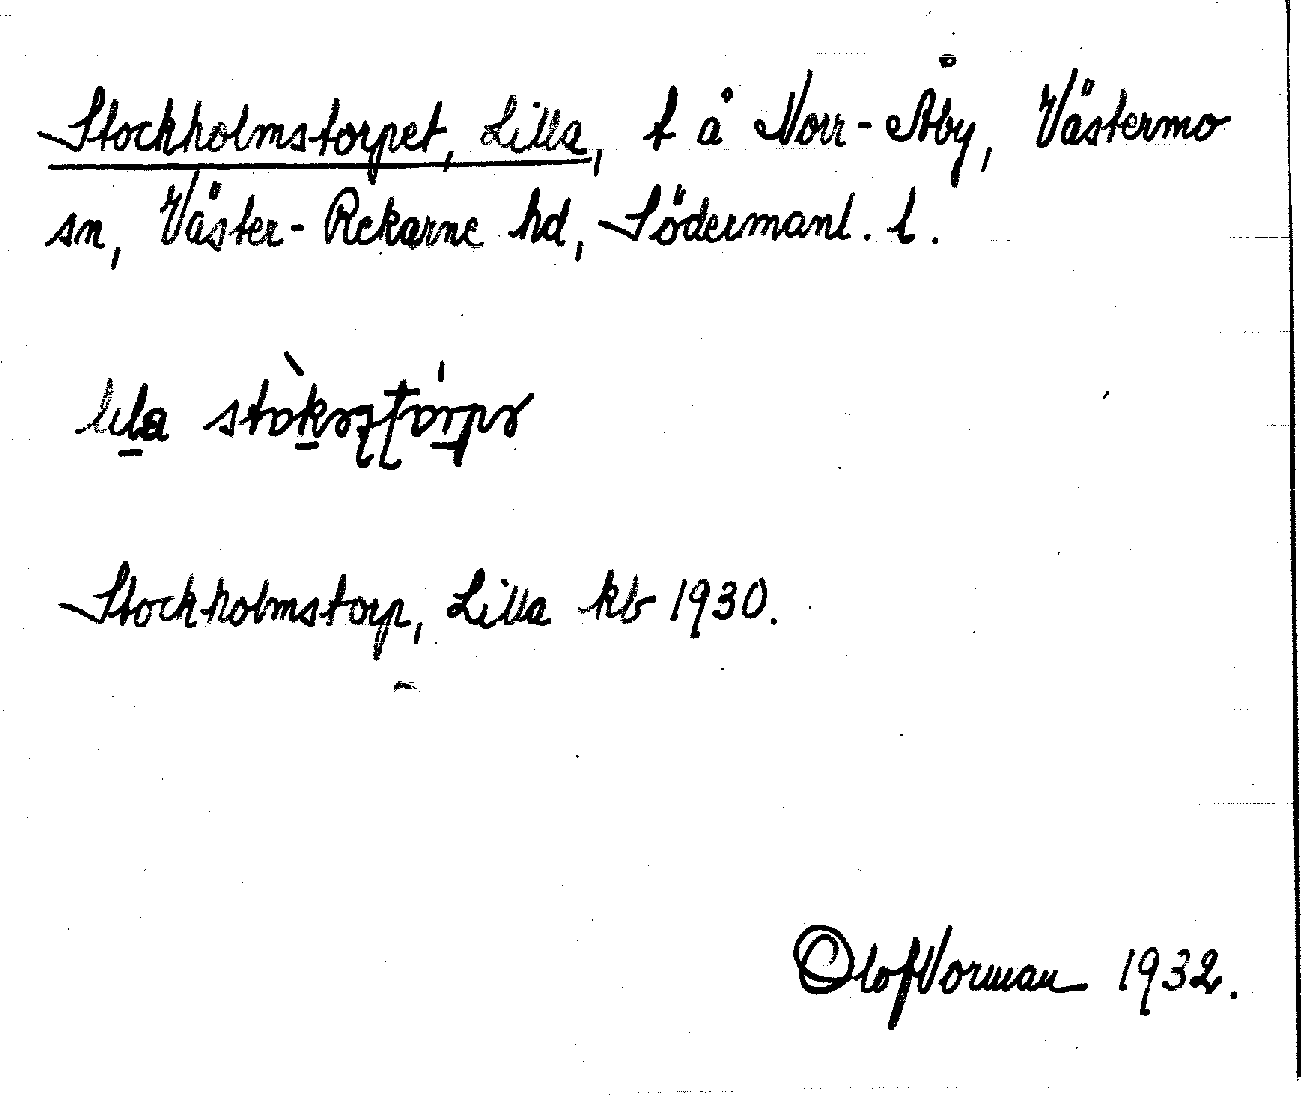 Stockholmstorpet, Lilla, t å Norr-Åby, Västermo
sn, Väster-Rekarne hd, Södermanl. l.
lila
Stockholmstorp, Lilla kb 1930.
Olof Norman 1932.